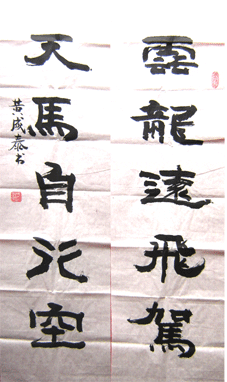 雲龍遠飛駕
天馬自行空
黃成泰书